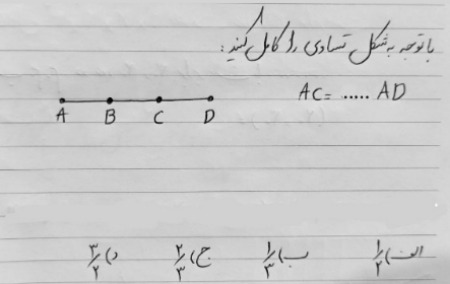 با توجه به شکل تساوی را کامل کنید :
AC = ..... AD
A B C D
الف) ۱/۲ ب) ۱/۳ ج) ۲/۳ د) ۳/۲